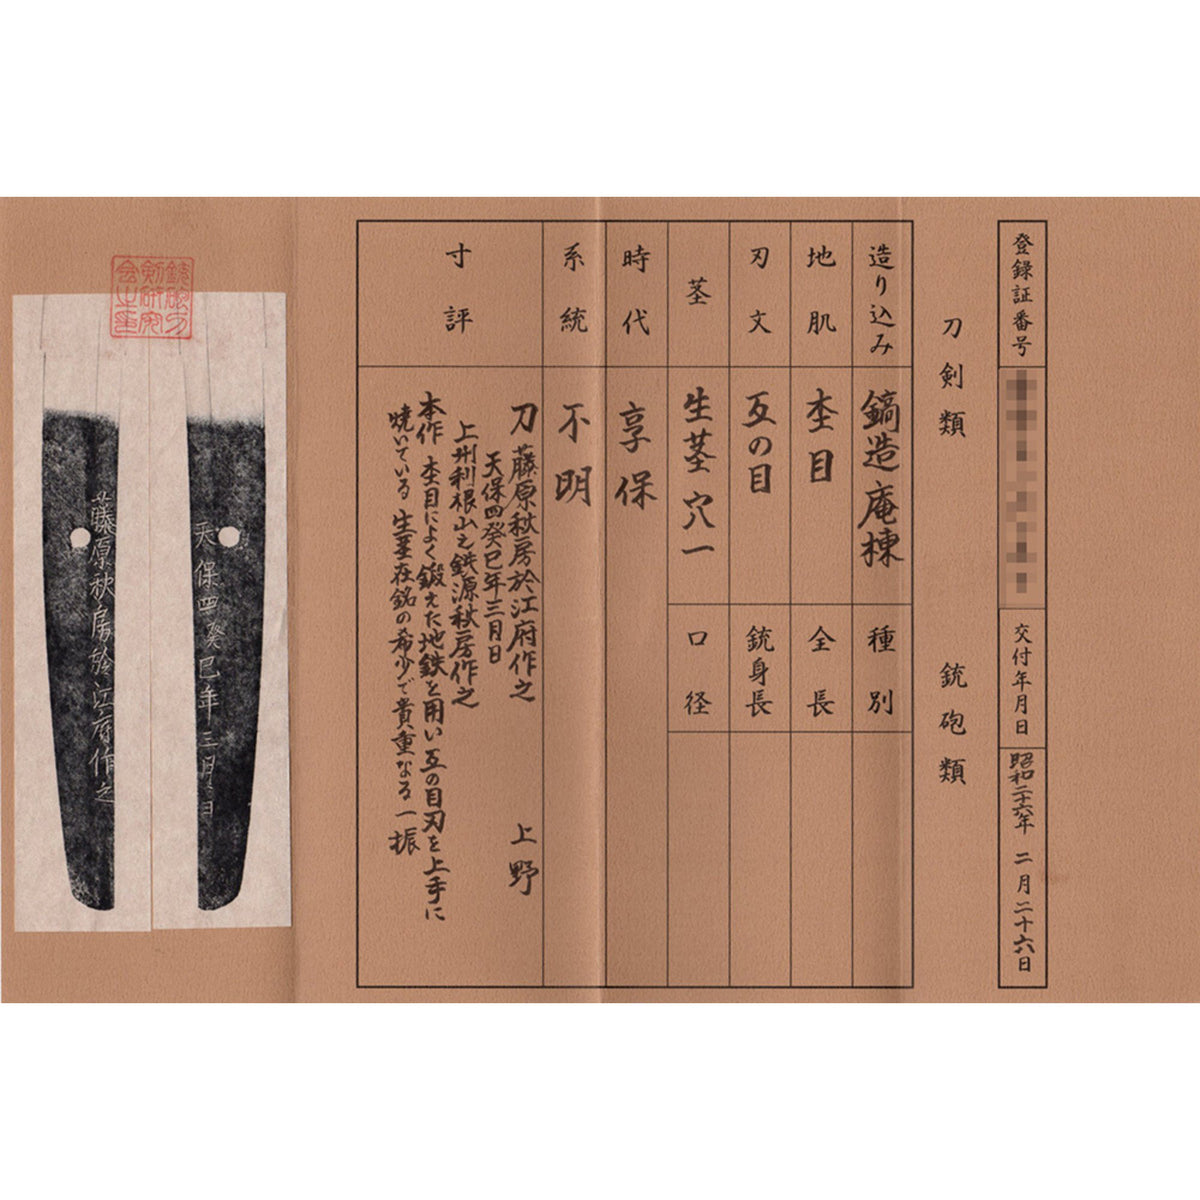 登録証番号
交付年月日
昭和二十六年 二月二十六日
刀剣類
銃砲類
造り込み
鎬造庵棟
種別
地肌
杢目
全長
刃文
互の目
銃身長
茎
生茎 穴一
口径
時代
享保
系統
不明
寸評
刀 藤原秋房於江府作之 上野
天保四癸巳年三月日
上州利根山之鉄源秋房作之
本作 杢目によく鍛えた地鉄を用い互の目刃を上手に
焼いている 生茎在銘の希少で貴重なる一振
銃砲刀
剣研究
会之印
天保四癸巳年三月日
藤原秋房於江府作之